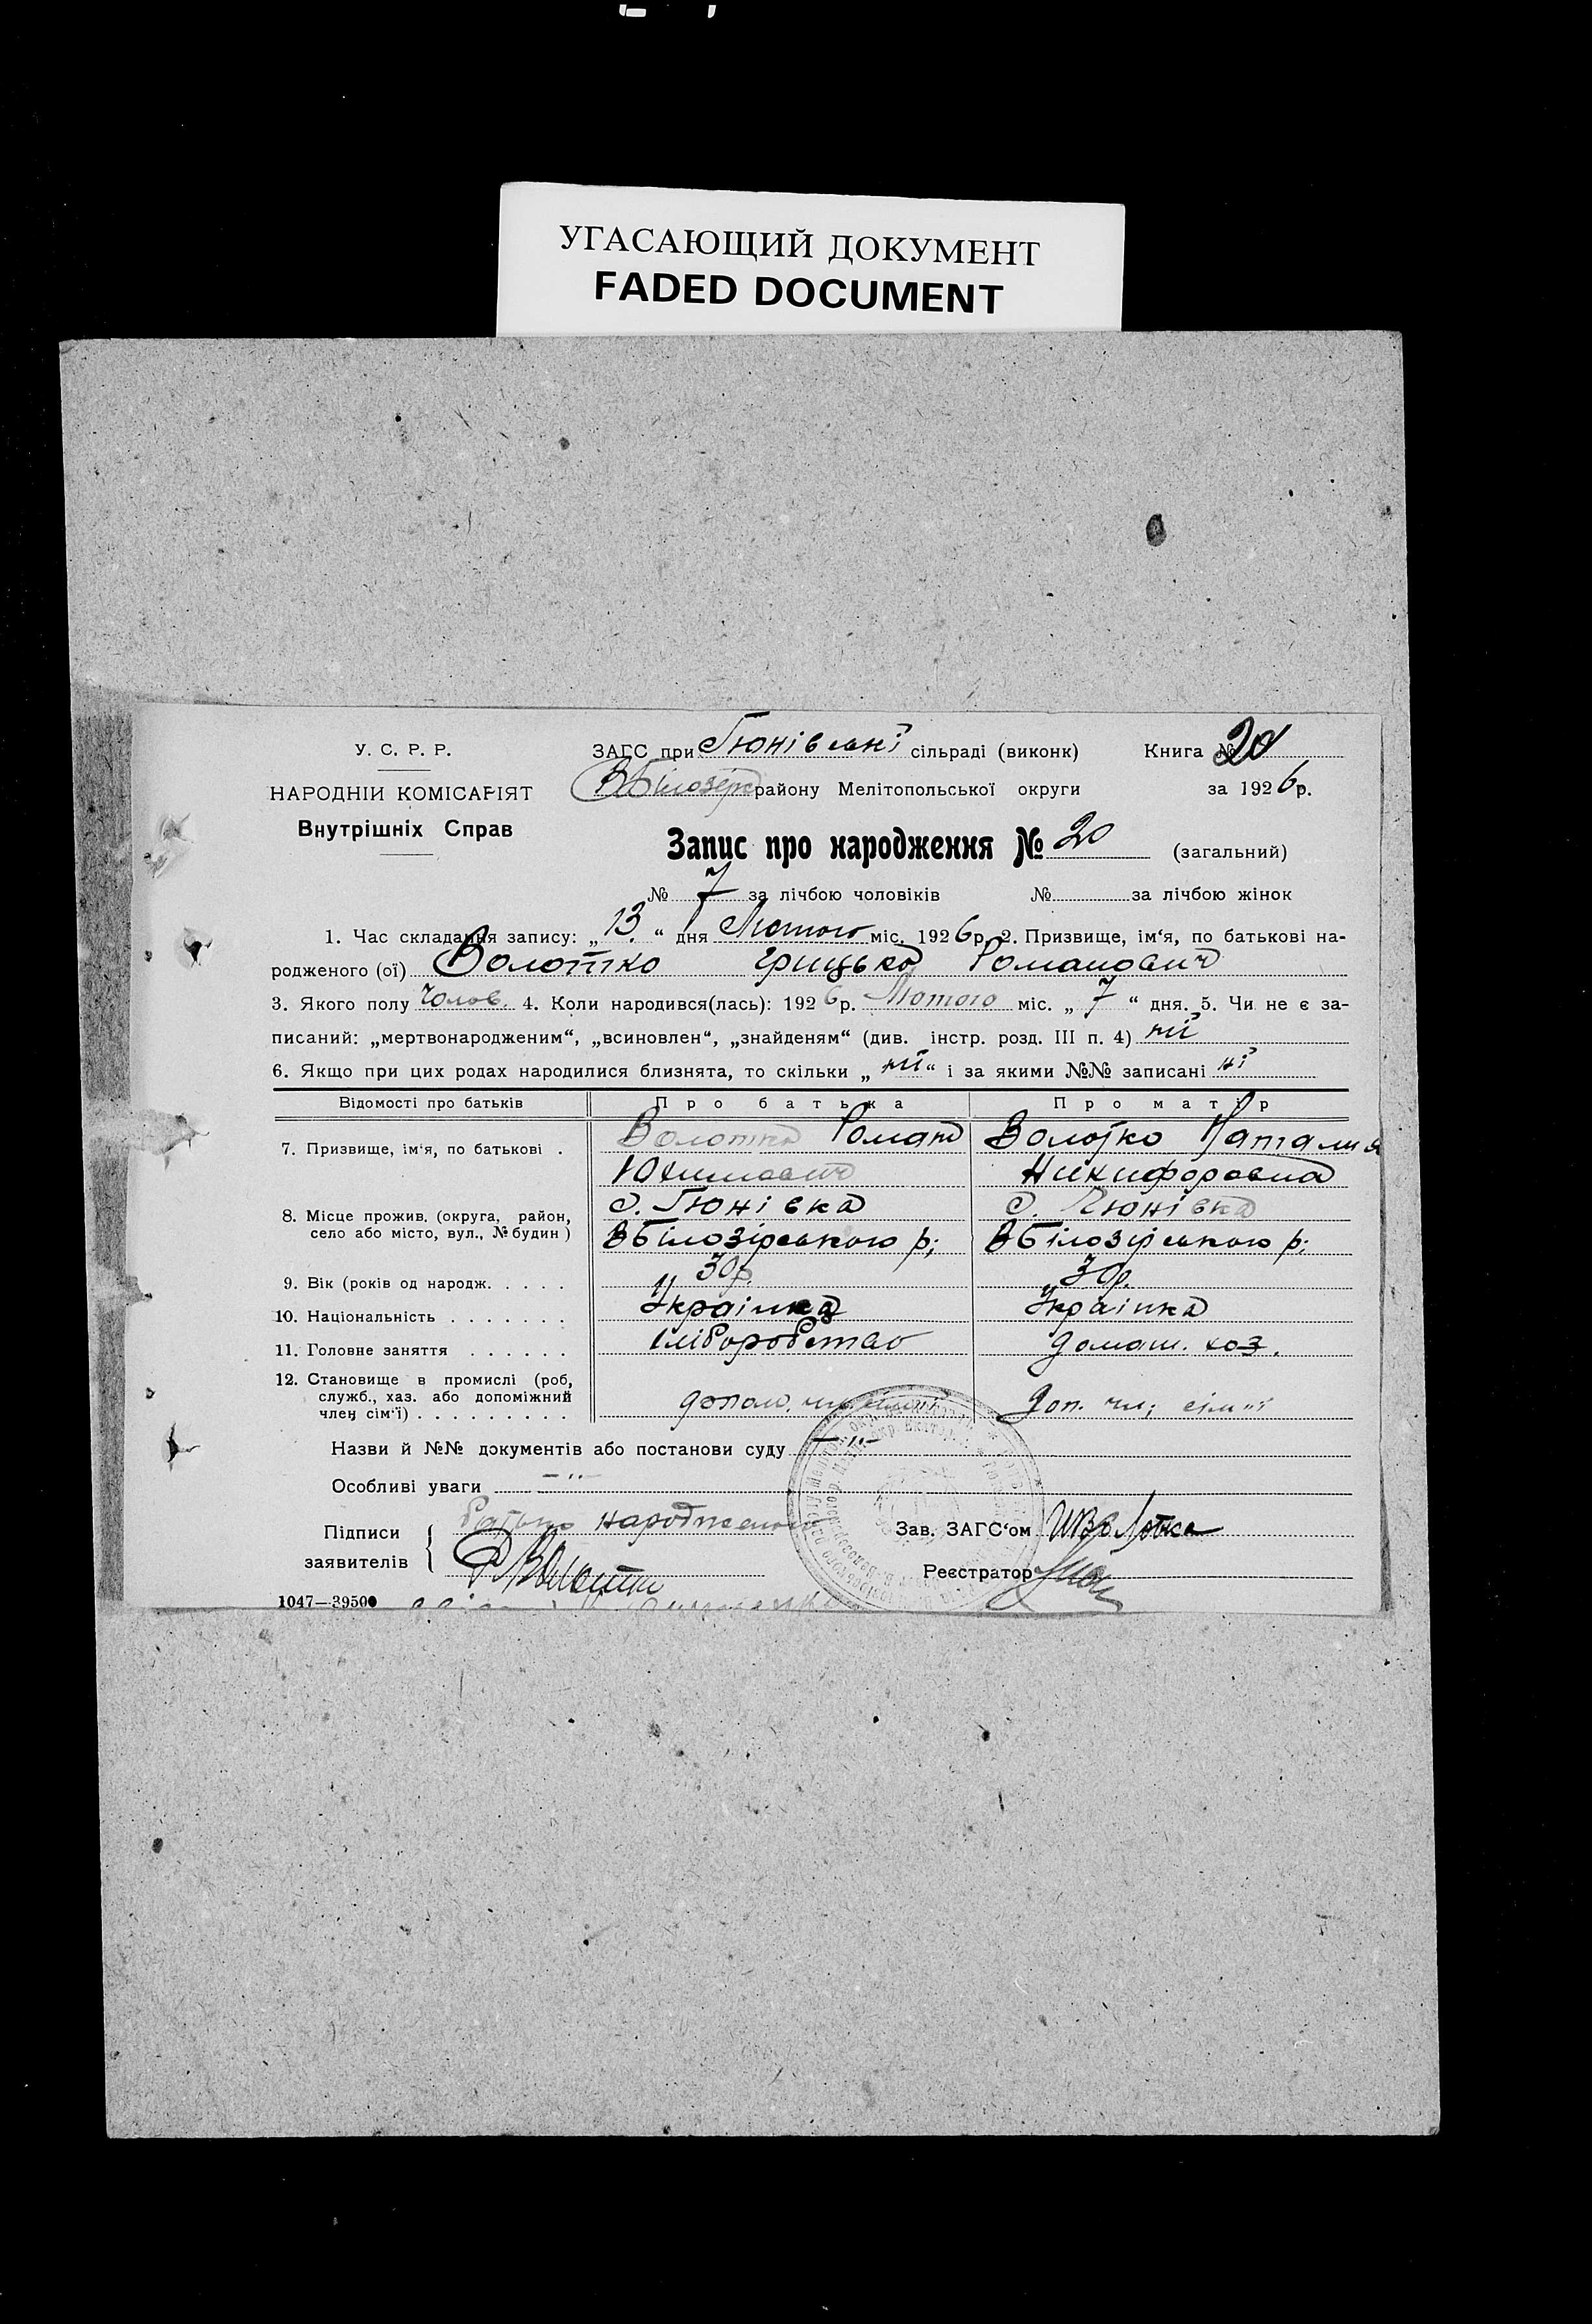 УГАСАЮЩИЙ ДОКУМЕНТ
FADED DOCUMENT
У. С. Р. Р.
ЗАГС при Гюнівські сільраді (виконк)
Книга № 20
НАРОДНІЙ КОМІСАРІЯТ
ВБілозерс району Мелітопольської округи
за 1926 р.
Внутрішніх Справ
Запис про народження № 20 (загальний)
№ 7 за лічбою чоловіків № за лічбою жінок
1. Час складання запису: „13“ дня Лютого міс. 1926 р. 2. Призвище, ім‘я, по батькові на-
родженого (ої) Волотко Грицько Романович
3. Якого полу Чолов. 4. Коли народився(лась): 1926 р. Лютого міс. „7“ дня. 5. Чи не є за-
писаний: „мертвонародженим“, „всиновлен“, „знайденям“ (див. інстр. розд. III п. 4) ні
6. Якщо при цих родах народилися близнята, то скільки „ні“ і за якими №№ записані ні
Відомості про батьків Про батька Про матір
7. Призвище, ім‘я, по батькові . Волотко Роман Волотко Наталия
Юхимович Никифоровна
8. Місце прожив. (округа, район, с. Гюнівка с. Гюнівка
село або місто, вул., № будин) ВБілозірського р; ВБілозірського р;
9. Вік (років од народж. . . . . 30 р. 30 р.
10. Національність . . . . . . . Українка Українка
11. Головне заняття . . . . . . хліборобство домаш. хоз.
12. Становище в промислі (роб,
служб., хаз. або допоміжний
член сім‘ї) . . . . . . . . . допом. Доп. чл; сімії
Назви й №№ документів або постанови суду —"—
Особливі уваги —"—
Підписи
заявителів
Батько народженого
Р Волотко
Зав. ЗАГС‘ом
Реєстратор
1047—39500